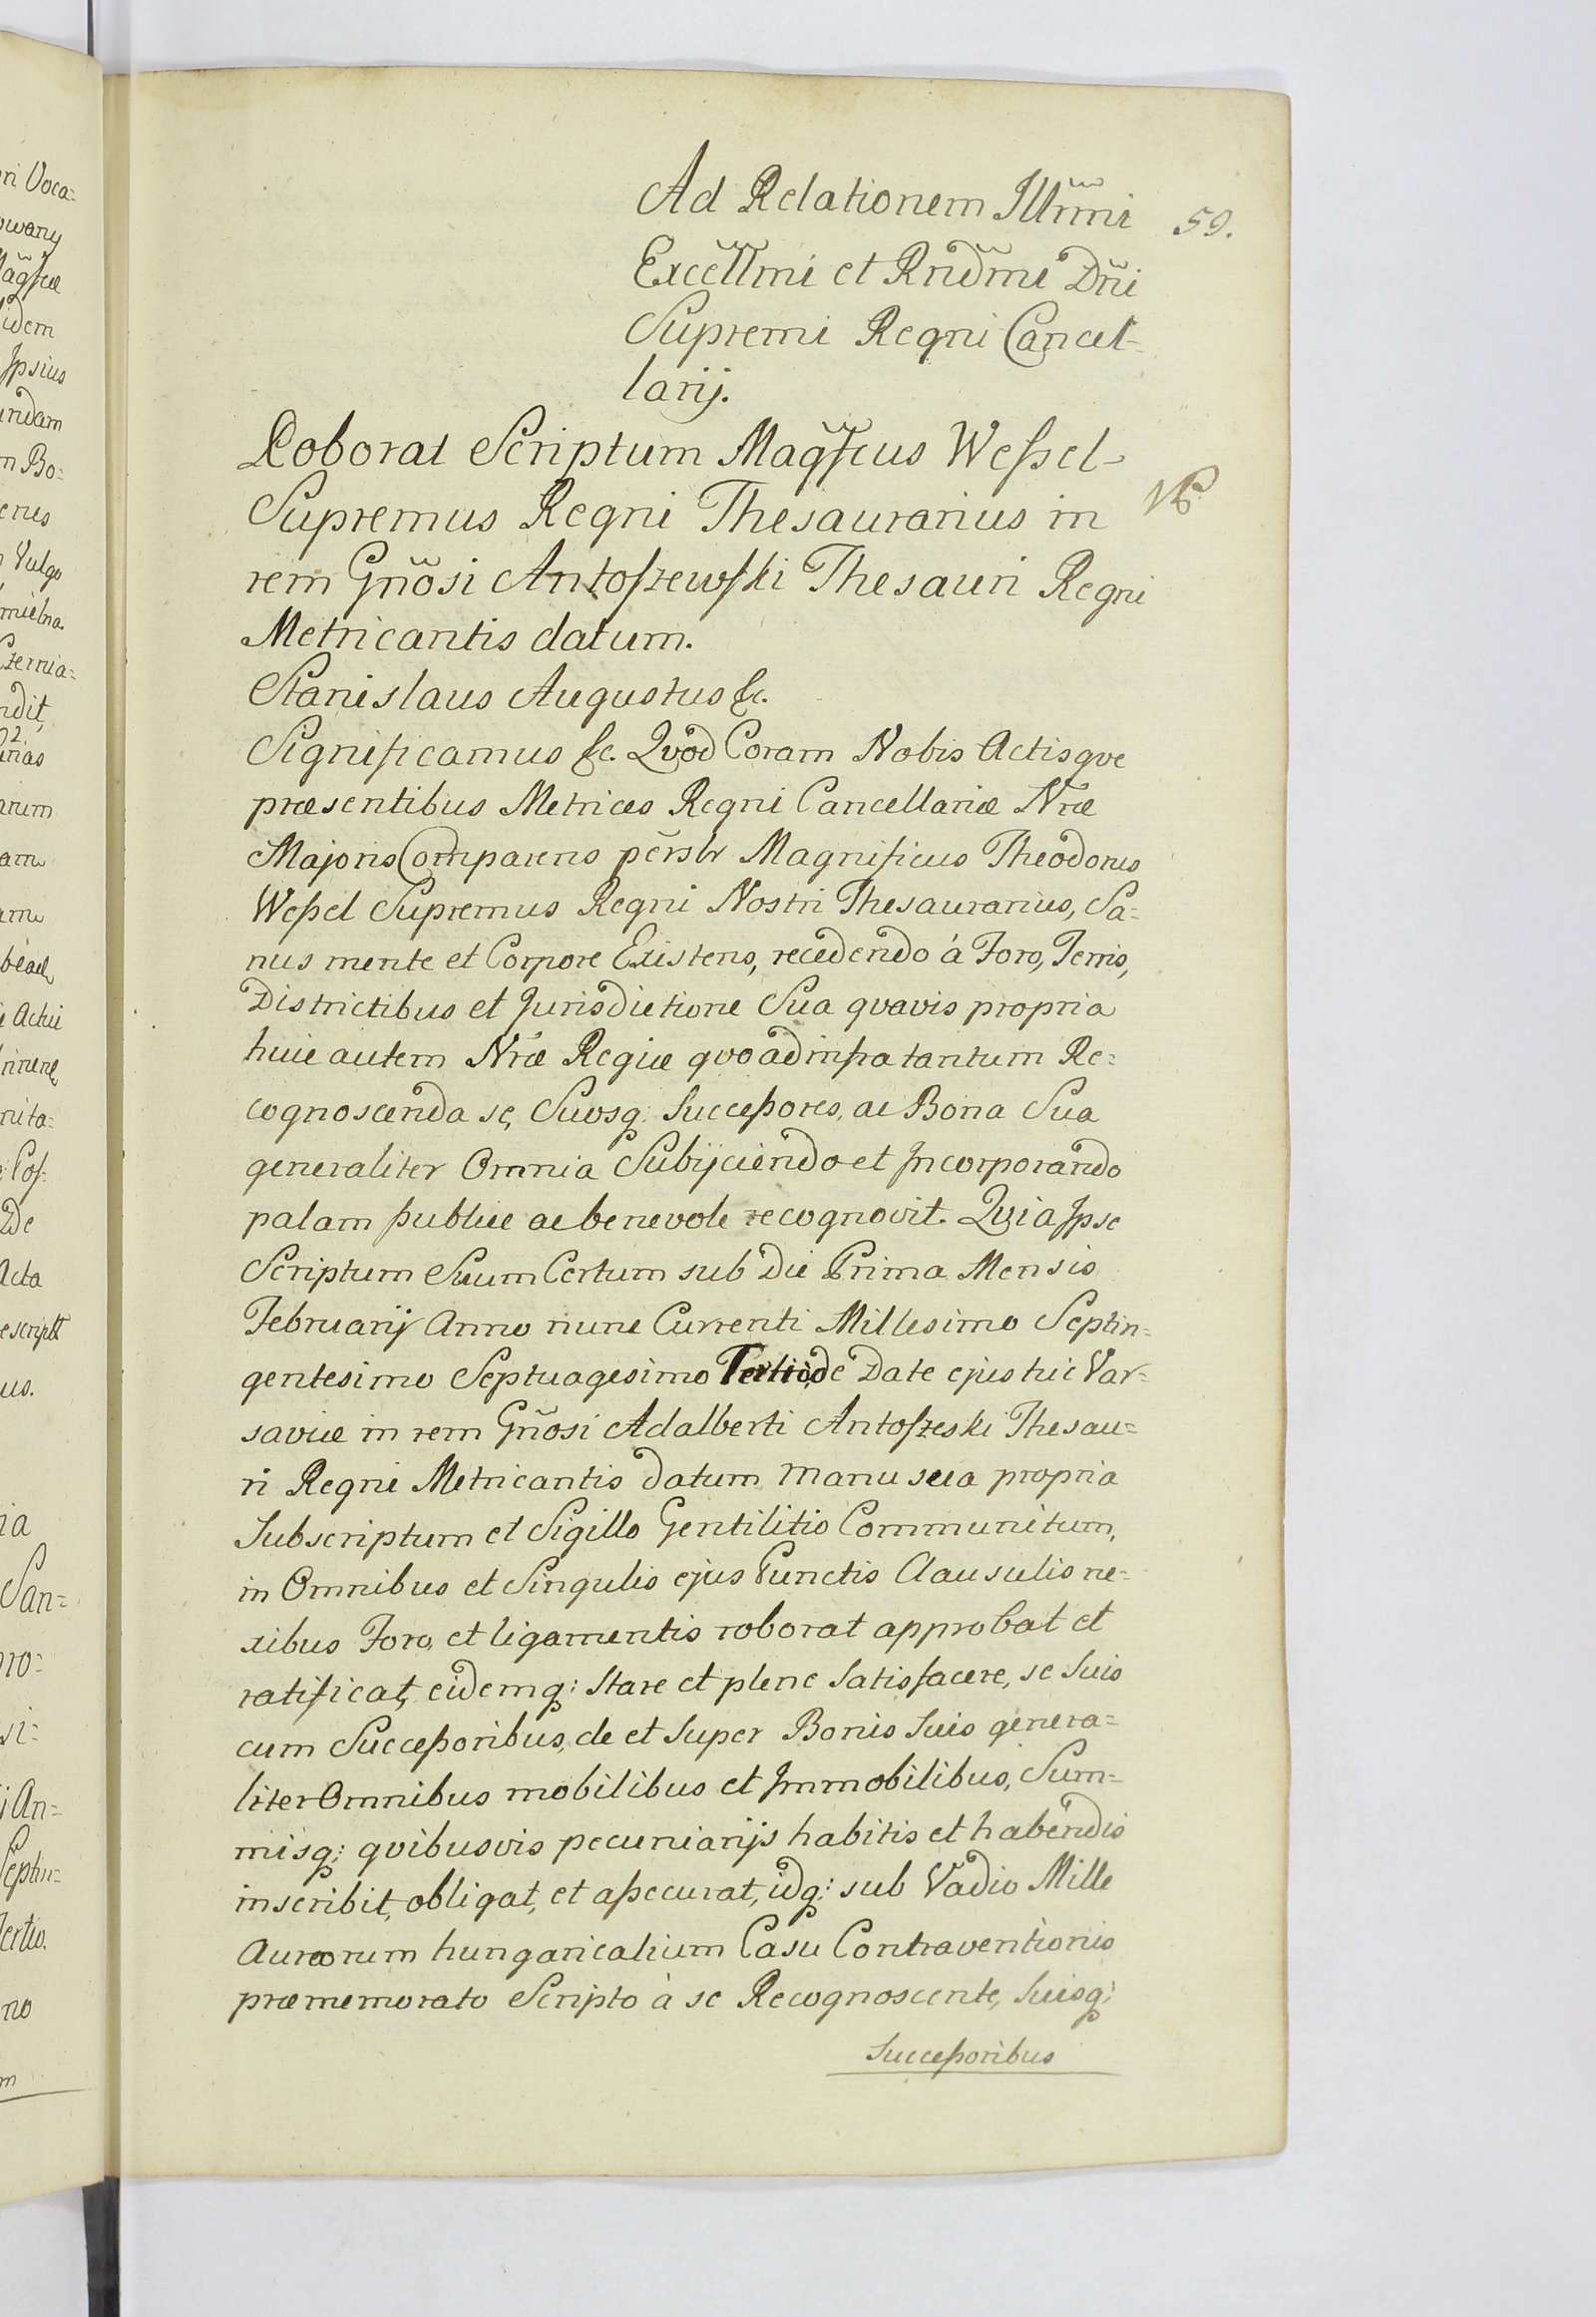 Ad Relationem Illm̃mi
59.
Excellm̃i et Rndm̃i Dñi
Supremi Regni Cancel=
larij.
Roborat Scriptum Magfcus Weſsel
Supremus Regni Thesaurarius in
rem Gnõsi Antoſzewſki Thesauri Regni
Metricantis datum.
Stanislaus Augustus &c.
Significamus &c. Quod Coram Nobis Actisqve
præsentibus Metrices Regni Cancellariæ Nræ
Majoris Comparens pẽrslr Magnificus Theodorus
Weſsel Supremus Regni Nostri Thesaurarius, Sa=
nus mente et Corpore Existens, recedendo à Foro, Terris,
Districtibus et Jurisdictione Sua qvavis propria
huic autem Nræ Regiæ qvoad infra tantum Re=
cognoscenda se, Suosq: Succeſsores, ac Bona Sua
generaliter Omnia Subijciendo et Incorporando
palam publice ac benevole recognovit. Qvia Ipse
Scriptum Suum Certum sub Die Prima Mensis
Februarij Anno nunc Currenti Millesimo Septin=
gentesimo Septuagesimo Tertio, de Date ejus hic Var=
saviæ in rem Gnõsi Adalberti Antoſzeski Thesau=
ri Regni Metricantis datum manu sua propria
Subscriptum et Sigillo Gentilitio Communitum,
in Omnibus et Singulis ejus Punctis Clausulis ne=
xibus Foro, et ligamentis roborat approbat et
ratificat, eidemq: stare et plene Satisfacere, se suis
cum Succeſsoribus, de et super Bonis suis genera=
liter Omnibus mobilibus et Immobilibus, Sum=
misq: qvibusvis pecuniarijs habitis et habendis
inscribit, obligat, et aſsecurat, idq: sub Vadio Mille
Aureorum hungaricalium Casu Contraventionis
præmemorato Scripto à se Recognoscente, Suisq:
Succeſsoribus